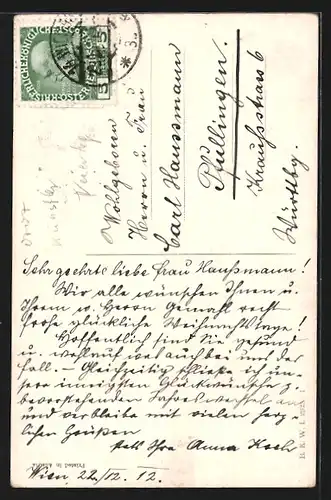 Wohlgeboren
Herrn u. Frau
Carl Haussmann
Pfullingen.
Kraußstrass 6
Württbg.
Sehr geehrte liebe Frau Haußmann!
Wir alle wünschen Ihnen u.
Ihrem w. Herrn Gemahl recht
frohe glückliche Weihnachtstage!
Hoffentlich sind Sie gesund
u. wohlauf was auch bei uns der
Fall. – Gleichzeitig schließe ich un-
sere innigsten Glückwünsche z.
bevorstehenden Jahreswechsel an
und verbleibe mit vielen herz-
lichen Grüßen
stets Ihre Anna Koch
Wien 22/12. 12.
Printed in
B.K.W.I.